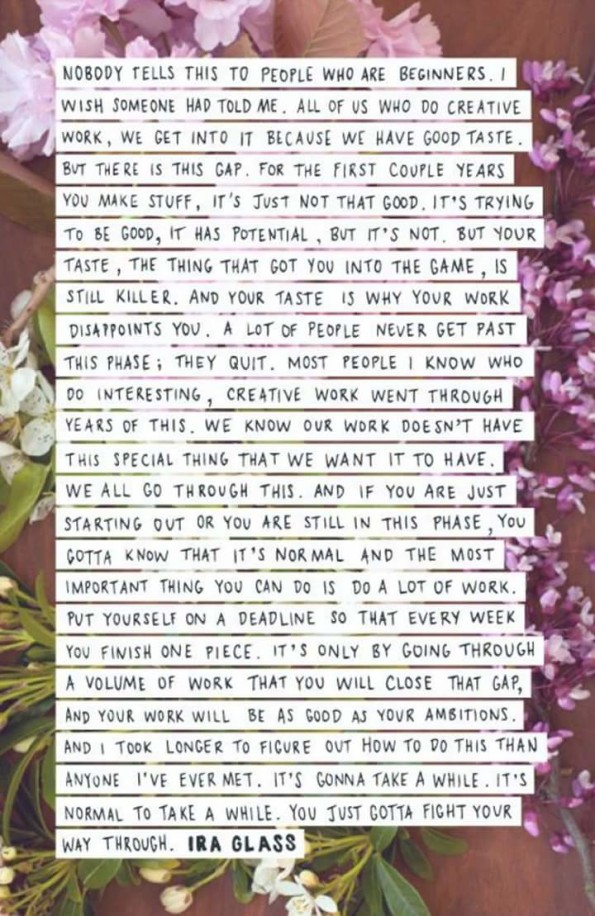 NOBODY TELLS THIS TO PEOPLE WHO ARE BEGINNERS. I
WISH SOMEONE HAD TOLD ME. ALL OF US WHO DO CREATIVE
WORK, WE GET INTO IT BECAUSE WE HAVE GOOD TASTE.
BUT THERE IS THIS GAP. FOR THE FIRST COUPLE YEARS
YOU MAKE STUFF, IT'S JUST NOT THAT GOOD. IT'S TRYING
TO BE GOOD, IT HAS POTENTIAL, BUT IT'S NOT. BUT YOUR
TASTE, THE THING THAT GOT YOU INTO THE GAME, IS
STILL KILLER. AND YOUR TASTE IS WHY YOUR WORK
DISAPPOINTS YOU. A LOT OF PEOPLE NEVER GET PAST
THIS PHASE; THEY QUIT. MOST PEOPLE I KNOW WHO
DO INTERESTING, CREATIVE WORK WENT THROUGH
YEARS OF THIS. WE KNOW OUR WORK DOESN'T HAVE
THIS SPECIAL THING THAT WE WANT IT TO HAVE.
WE ALL GO THROUGH THIS. AND IF YOU ARE JUST
STARTING OUT OR YOU ARE STILL IN THIS PHASE, YOU
GOTTA KNOW THAT IT'S NORMAL AND THE MOST
IMPORTANT THING YOU CAN DO IS DO A LOT OF WORK.
PUT YOURSELF ON A DEADLINE SO THAT EVERY WEEK
YOU FINISH ONE PIECE. IT'S ONLY BY GOING THROUGH
A VOLUME OF WORK THAT YOU WILL CLOSE THAT GAP,
AND YOUR WORK WILL BE AS GOOD AS YOUR AMBITIONS.
AND I TOOK LONGER TO FIGURE OUT HOW TO DO THIS THAN
ANYONE I'VE EVER MET. IT'S GONNA TAKE A WHILE. IT'S
NORMAL TO TAKE A WHILE. YOU JUST GOTTA FIGHT YOUR
WAY THROUGH. IRA GLASS